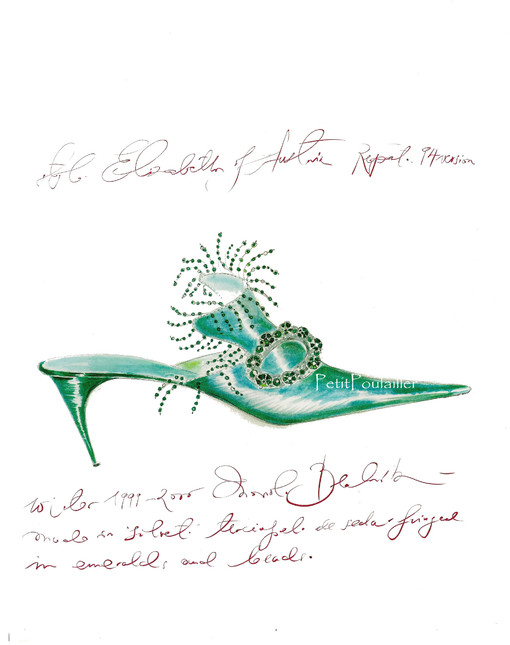 Style. Elisabeth of Austria Repeat. 94 version
PetitPoulailler
winter 1999-2000 Manolo Blahnik -
made in terciopelo de seda fringed
in emeralds and beads.